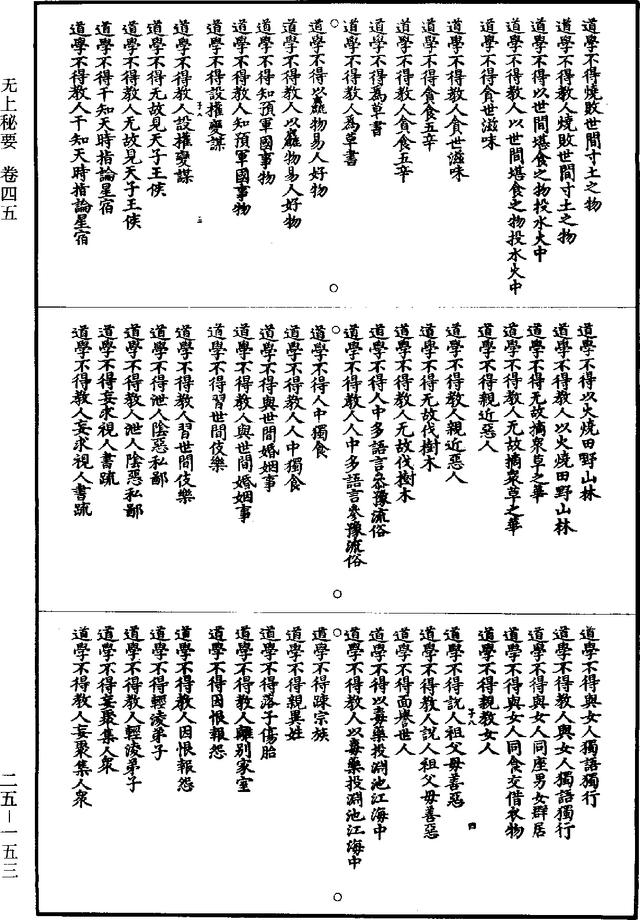 道學不得燒敗世間寸土之物
道學不得教人燒敗世間寸土之物
道學不得以世間堪食之物投水火中
道學不得教人以世間堪食之物投水火中
道學不得貪世滋味
道學不得教人貪世滋味
道學不得貪食五辛
道學不得教人貪食五辛
道學不得為草書
道學不得教人為草書
道學不得以麤物易人好物
道學不得教人以麤物易人好物
道學不得知預軍國事物
道學不得教人知預軍國事物
道學不得設權變謀
道學不得教人設權變謀
道學不得无故見天子王侯
道學不得教人无故見天子王侯
道學不得干知天時指論星宿
道學不得教人干知天時指論星宿
道學不得以火燒田野山林
道學不得教人以火燒田野山林
道學不得无故摘衆草之華
道學不得教人无故摘衆草之華
道學不得親近惡人
道學不得教人親近惡人
道學不得无故伐樹木
道學不得教人无故伐樹木
道學不得人中多語言參豫流俗
道學不得教人人中多語言參豫流俗
道學不得人中獨食
道學不得教人人中獨食
道學不得與世間婚姻事
道學不得教人與世間婚姻事
道學不得習世間伎樂
道學不得教人習世間伎樂
道學不得泄人陰惡私鄙
道學不得教人泄人陰惡私鄙
道學不得妄求視人書疏
道學不得教人妄求視人書疏
道學不得與女人獨語獨行
道學不得教人與女人獨語獨行
道學不得與女人同座男女群居
道學不得與女人同食交借衣物
道學不得親教女人
道學不得說人祖父母善惡
道學不得教人說人祖父母善惡
道學不得面譽世人
道學不得以毒藥投淵池江海中
道學不得教人以毒藥投淵池江海中
道學不得踈宗族
道學不得親異姓
道學不得落子傷胎
道學不得教人離別家室
道學不得因恨報怨
道學不得教人因恨報怨
道學不得輕淩弟子
道學不得教人輕淩弟子
道學不得妄聚集人衆
道學不得教人妄聚集人衆
无上秘要 卷四五
二五－一五三